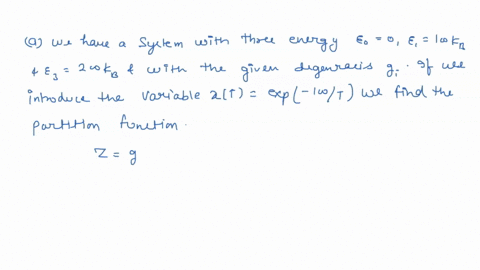 (a) we have a system with three energy ε₀ = 0, ε₁ = 100 k_B
& ε₃ = 200 k_B & with the given degeneracis g_i . If we
introduce the variable x(T) = exp(-100/T) we find the
partition function.
Z = g